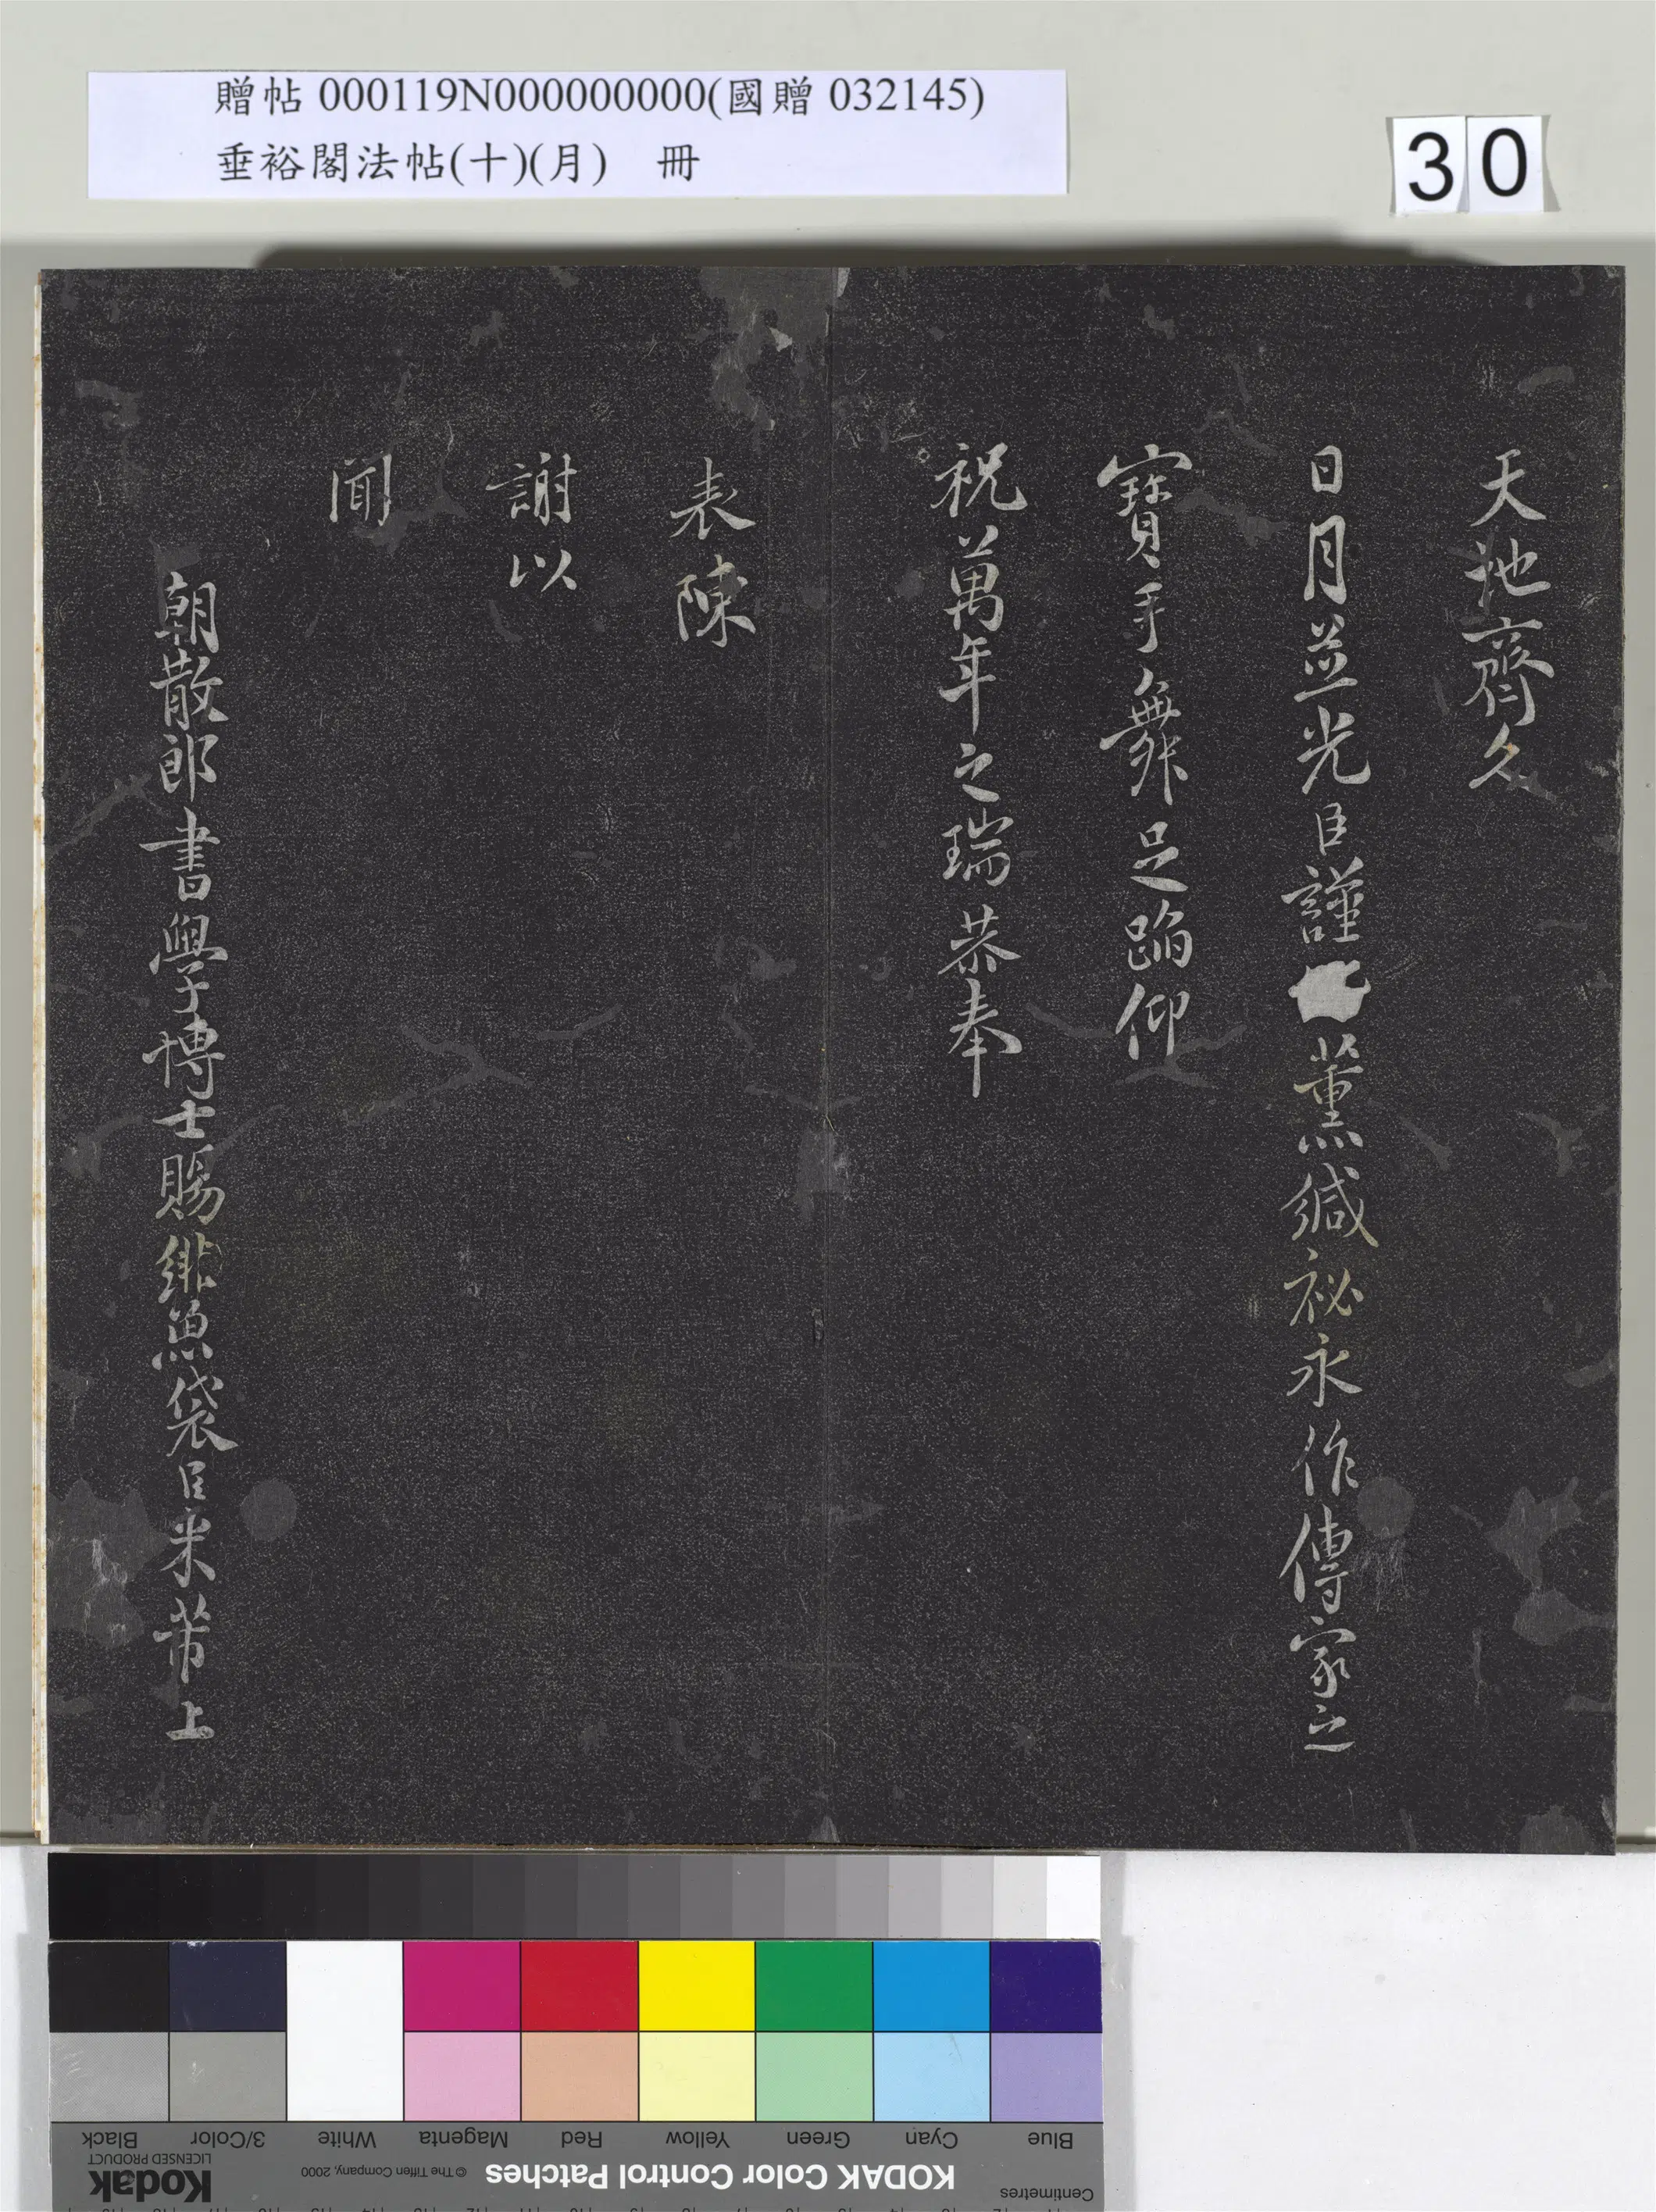 贈帖 000119N000000000(國贈 032145)
垂裕閣法帖(十)(月) 冊
30
天地齊久
日月並光臣謹薰緘祕永作傳家之
寶手舞足蹈仰
祝萬年之瑞恭奉
表陳
謝以
聞
朝散郎書學博士賜緋魚袋臣米芾上
Blue
Cyan
Green
Yellow
Red
Magenta
White
3/Color
Black
Centimetres
KODAK Color Control Patches
© The Tiffen Company, 2000
Kodak
LICENSED PRODUCT